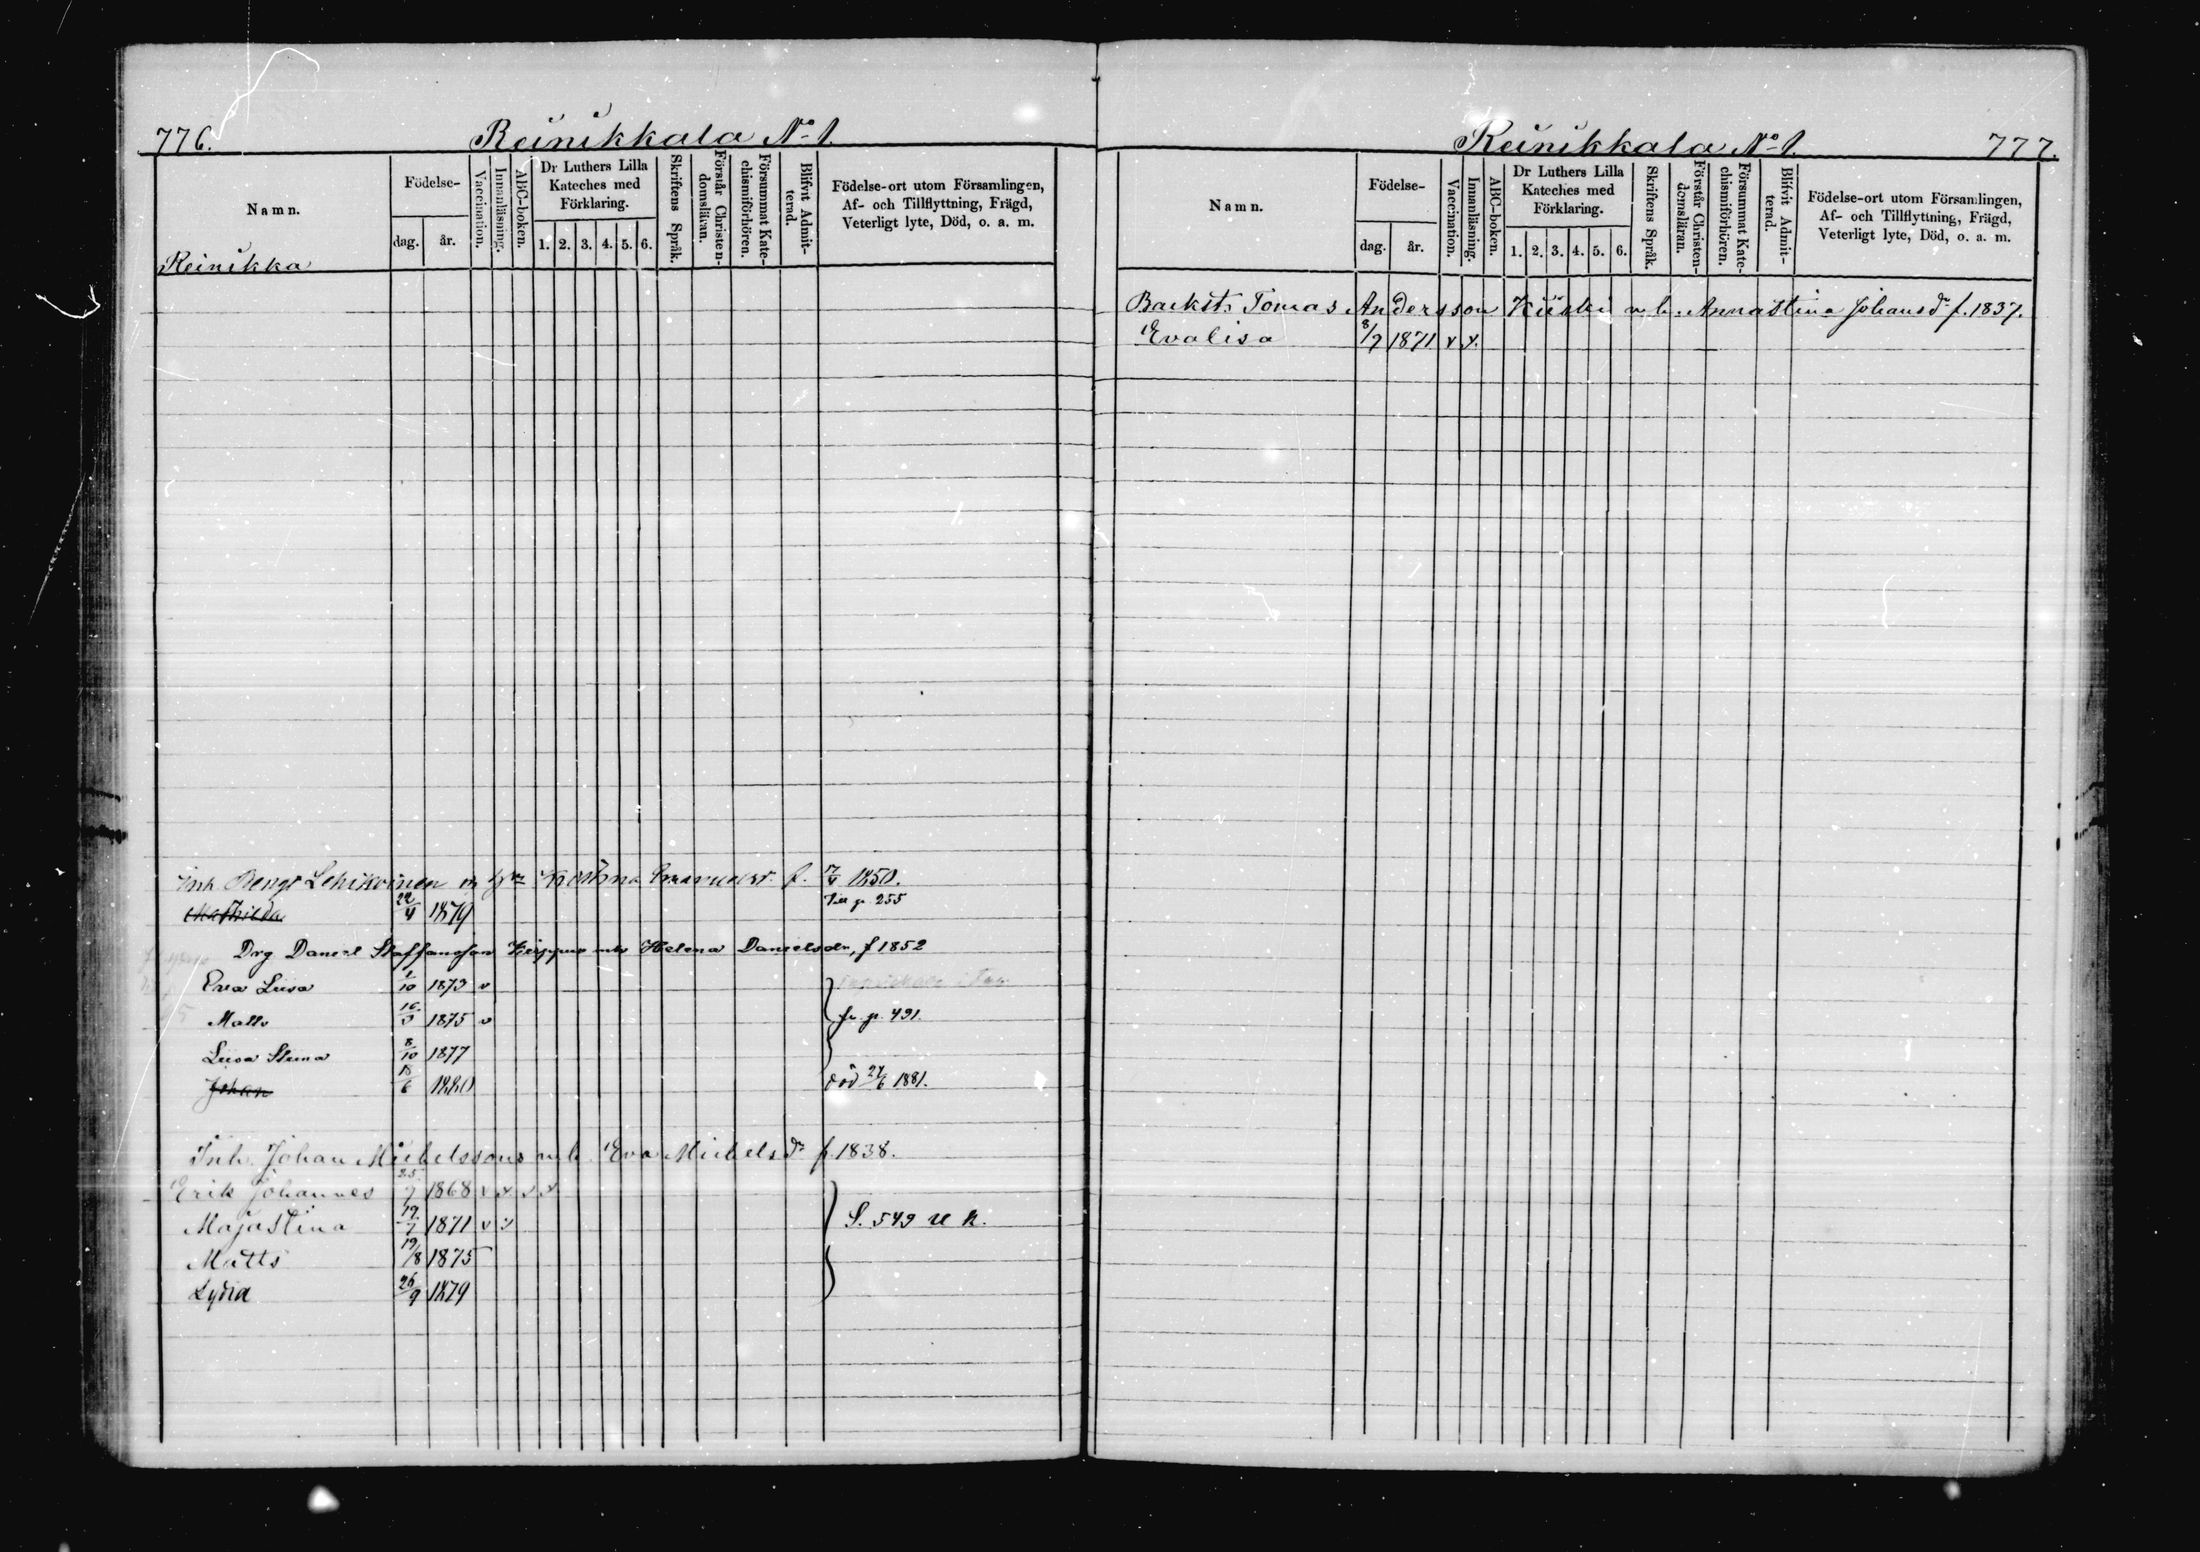 776. Reinikkala No 1.
Namn. Födelse- dag. år. Vaccination. Innanläsning. ABC-boken. Dr Luthers Lilla Kateches med Förklaring. 1. 2. 3. 4. 5. 6. Skriftens Språk. Förstår Christendomsläran. Försummat Katechismiförhören. Blifvit Admitterad. Födelse-ort utom Församlingen, Af- och Tillflyttning, Frägd, Veterligt lyte, Död, o. a. m.
Reinikka
Inh. Bengt Lehikoinen f. 17/4 1850.
Mathilda 22/4 1879 Till p. 255
Drg Daniel Staffansson Helena Danielsdr, f 1852
Eva Liisa 1/10 1873 v
Matts 1875 v fr. p. 491.
Liisa Stina 8/10 1877
Johan 18/6 1880 död 27/6 1881.
Inh. Johan Michelssons m. h. Eva Michelsdr f. 1838.
Erik Johannes 25/7 1868 v x v x
Majastina 19/7 1871 v v S. 549 u k.
Matts 19/8 1875
Lydia 26/9 1879
Reinikkala No 1. 777.
Namn. Födelse- dag. år. Vaccination. Innanläsning. ABC-boken. Dr Luthers Lilla Kateches med Förklaring. 1. 2. 3. 4. 5. 6. Skriftens Språk. Förstår Christendomsläran. Försummat Katechismiförhören. Blifvit Admitterad. Födelse-ort utom Församlingen, Af- och Tillflyttning, Frägd, Veterligt lyte, Död, o. a. m.
Backst. Tomas Andersson Kiiski m. h. Annastina Johansdr f. 1837.
Evalisa 8/7 1871 v v.